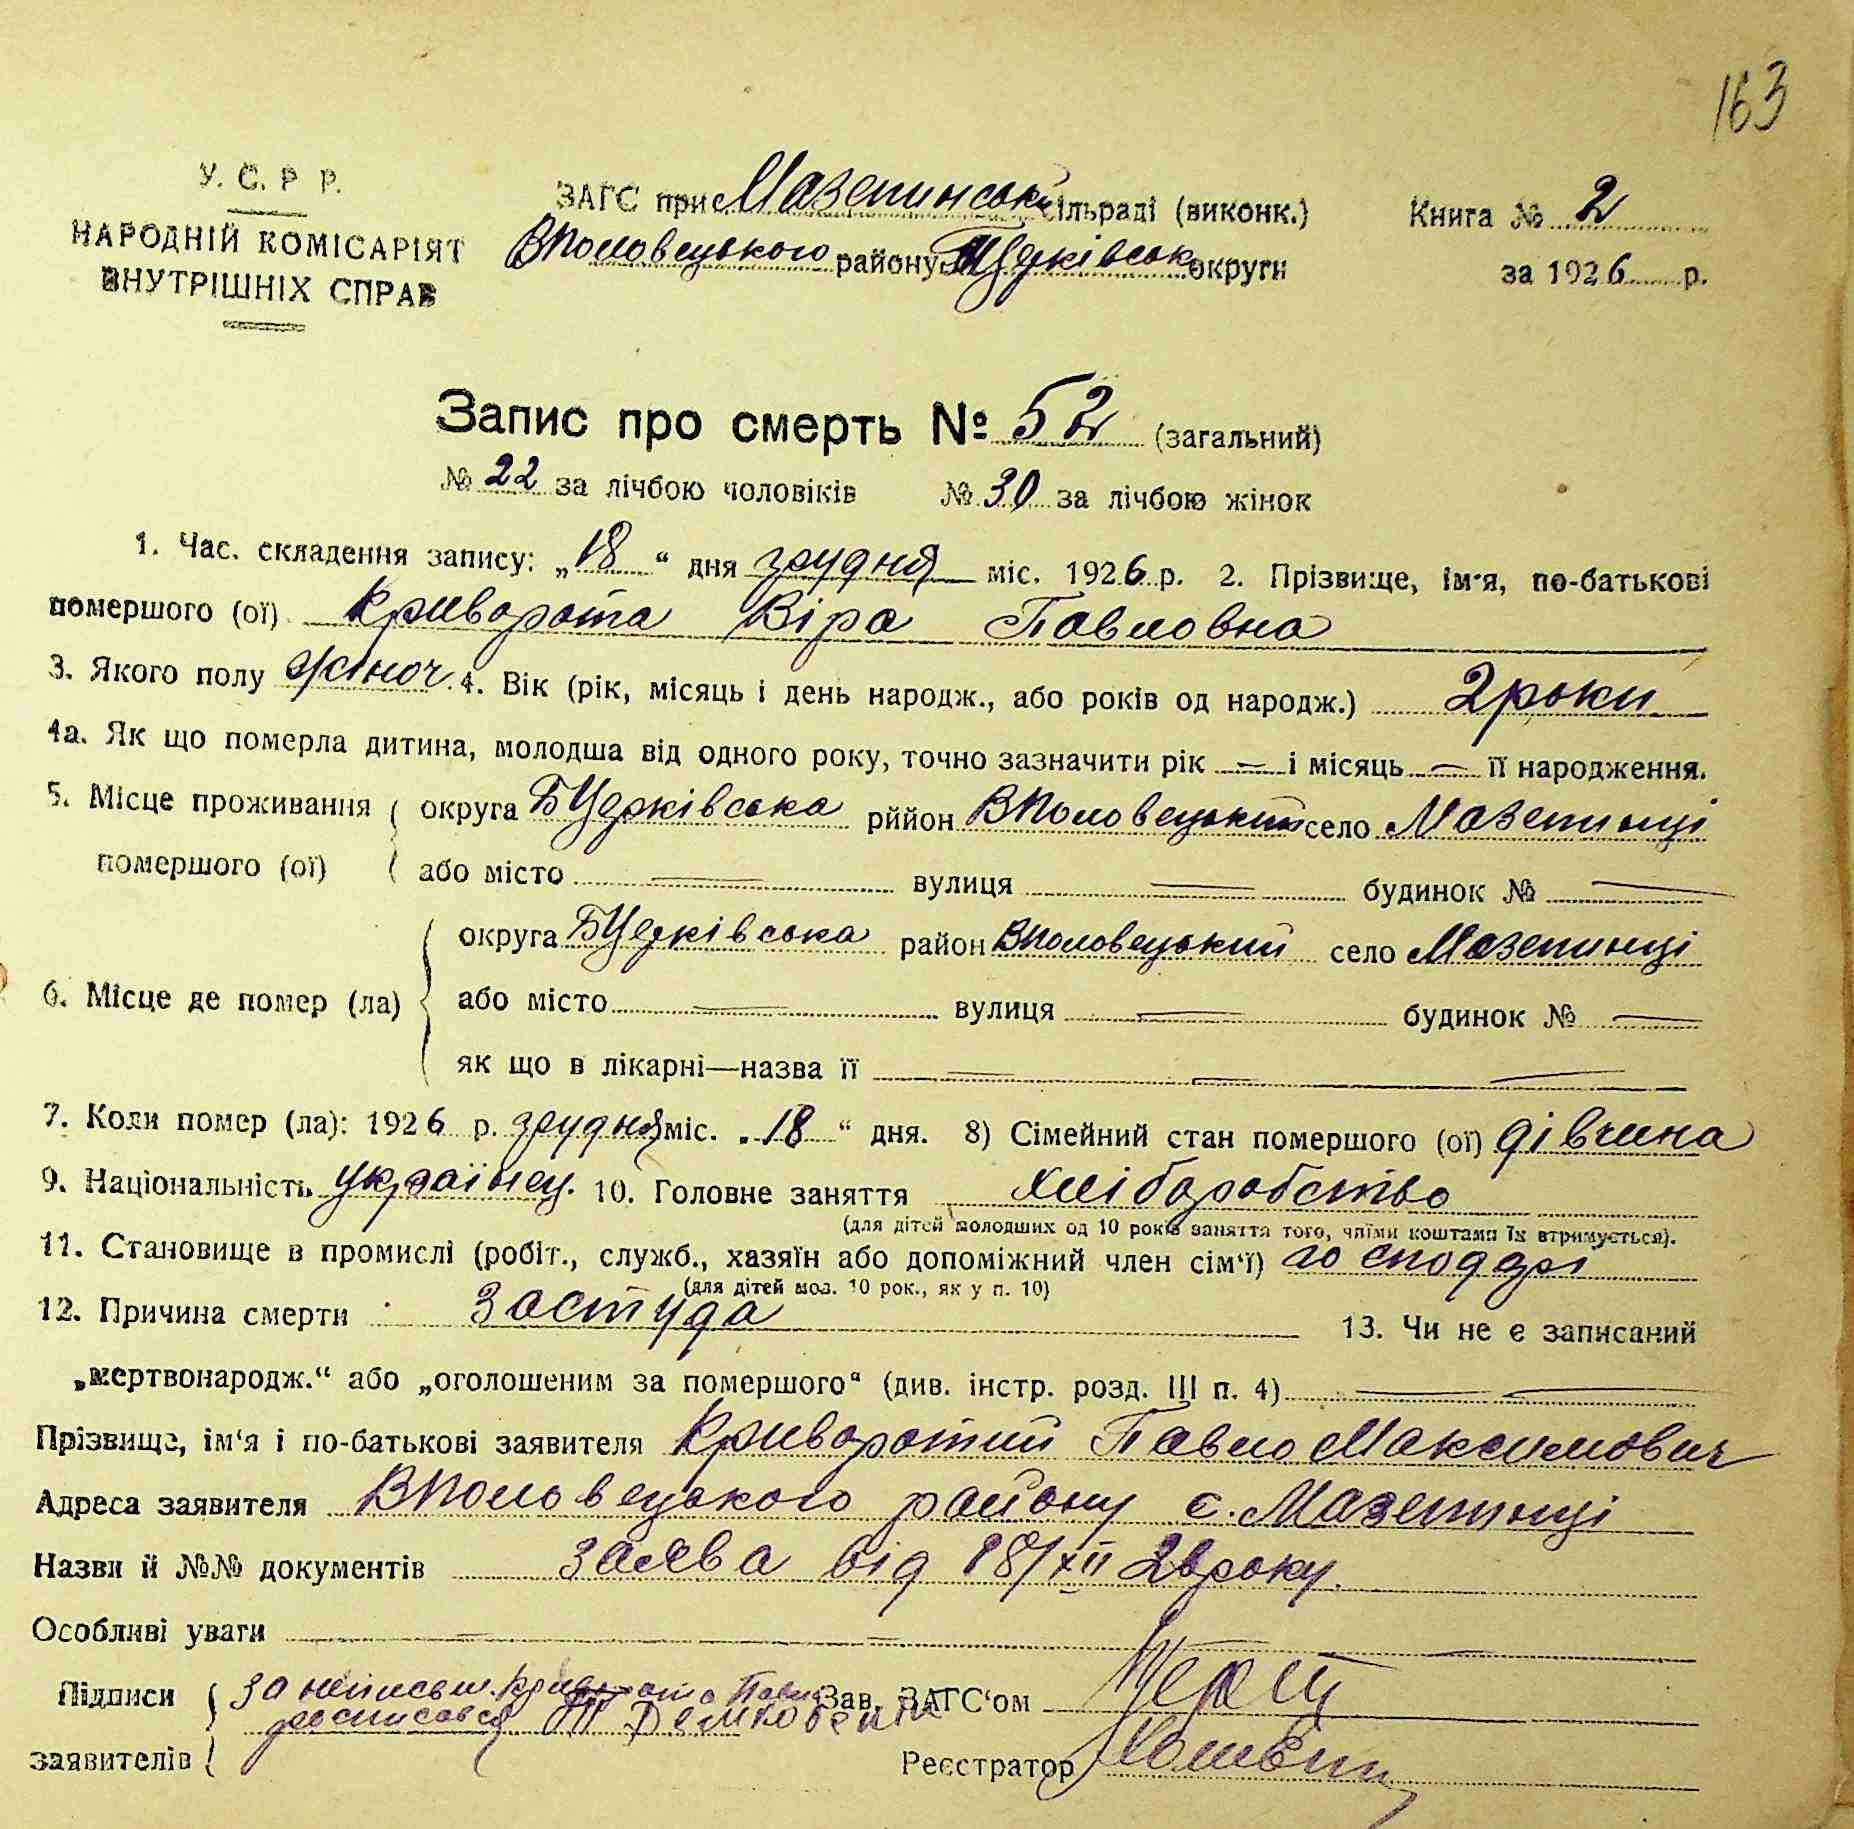 163
У. С. Р Р.
НАРОДНІЙ КОМІСАРІЯТ
ВНУТРІШНІХ СПРАВ
ЗАГС при Мазепинській сільраді (виконк.)
ВПоловецького району БЦерківськ округи
Книга № 2
за 1926 р.
Запис про смерть № 52 (загальний)
№ 22 за лічбою чоловіків № 30 за лічбою жінок
1. Час. складення запису: „18“ дня грудня міс. 1926 р. 2. Прізвище, ім'я, по-батькові
помершого (ої) Криворота Віра Павловна
3. Якого полу жіноч. 4. Вік (рік, місяць і день народж., або років од народж.) 2 роки
4а. Як що померла дитина, молодша від одного року, точно зазначити рік — і місяць — її народження.
5. Місце проживання округа БЦерківська рййон ВПоловецький село Мазепинці
помершого (ої) або місто — вулиця — будинок № —
округа БЦерківська район ВПоловецький село Мазепинці
6. Місце де помер (ла) або місто — вулиця — будинок № —
як що в лікарні—назва її — — —
7. Коли помер (ла): 1926 р. грудня міс. „18“ дня. 8) Сімейний стан помершого (ої) дівчина
9. Національність українец. 10. Головне заняття хліборобство
(для дітей молодших од 10 років заняття того, чиїми коштами їх втримується).
11. Становище в промислі (робіт., служб., хазяїн або допоміжний член сім'ї) господарі
(для дітей мол. 10 рок., як у п. 10)
12. Причина смерти застуда 13. Чи не є записаний
„мертвонародж.“ або „оголошеним за помершого“ (див. інстр. розд. III п. 4) — —
Прізвище, ім'я і по-батькові заявителя Криворотий Павло Максимович
Адреса заявителя ВПоловецького району с. Мазепинці
Назви й №№ документів заява від 18/XII 26 року.
Особливі уваги — — —
Підписи за неписьм. Криворота Павла Зав. ЗАГС'ом
росписався
заявителів Реєстратор